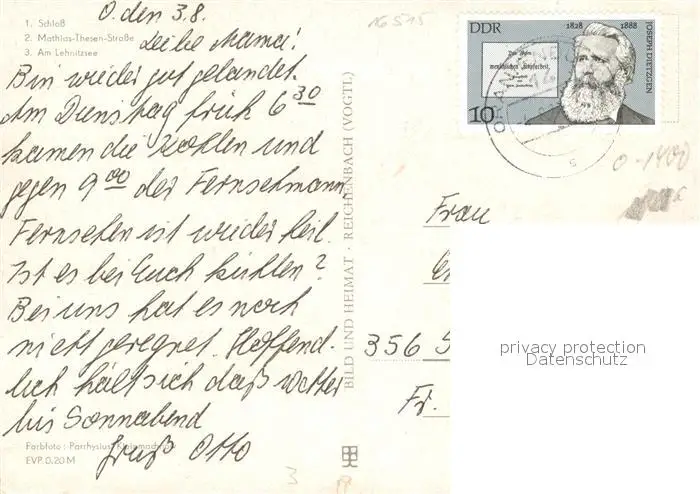 1. Schloß
2. Mathias-Thesen-Straße
3. Am Lehnitzsee
O. den 3.8.
Liebe Mama!
Bin wieder gut gelandet.
Am Dienstag früh 6 30
kamen die Kohlen und
gegen 9 00 der Fernsehmann
Fernsehen ist wieder heil.
Ist es bei Euch kühler?
Bei uns hat es noch
nicht geregnet. Hoffend-
lich hält sich daß Wetter
bis Sonnabend
Gruß Otto
Farbfoto: Parrhysius, Kleinmachnow
EVP 0.20 M
BILD UND HEIMAT · REICHENBACH (VOGTL)
16515
DDR 1828 1888
JOSEPH DIETZGEN
Das Wesen
der menschlichen Kopfarbeit.
10
O-1400
Frau
356 S
Fr.
privacy protection
Datenschutz